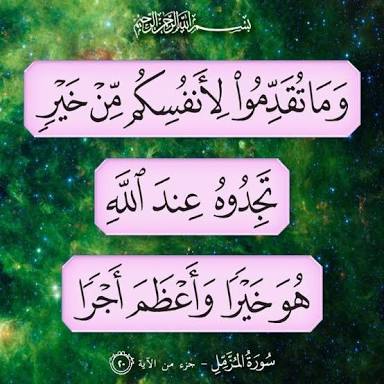 بِسْمِ اللَّهِ الرَّحْمَٰنِ الرَّحِيمِ
وَمَا تُقَدِّمُوا۟ لِأَنفُسِكُم مِّنْ خَيْرٍ
تَجِدُوهُ عِندَ ٱللَّهِ
هُوَ خَيْرًا وَأَعْظَمَ أَجْرًا
سُورَةُ المُزَّمِّل - جزء من الآية ٢٠